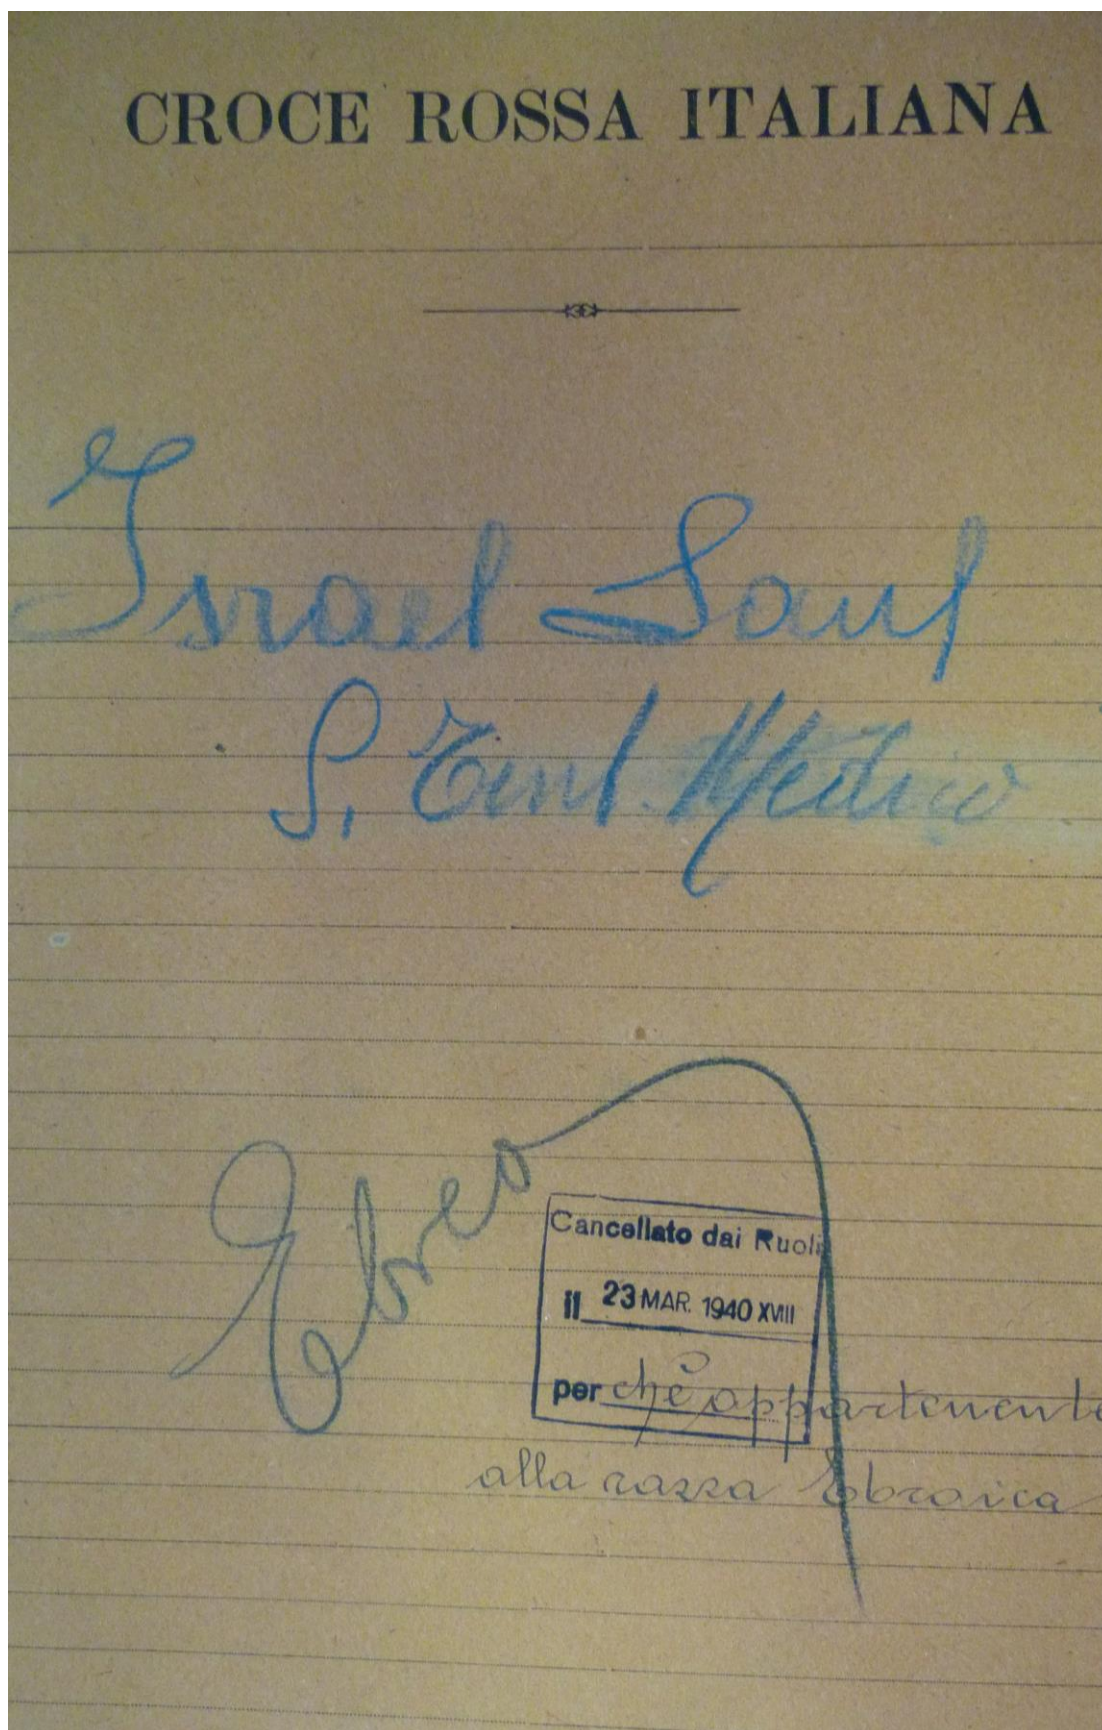 CROCE ROSSA ITALIANA
Israel Saul
S. Tent. Medico
Ebreo
Cancellato dai Ruoli
il 23 MAR. 1940 XVIII
perchè appartenente
alla razza Ebraica